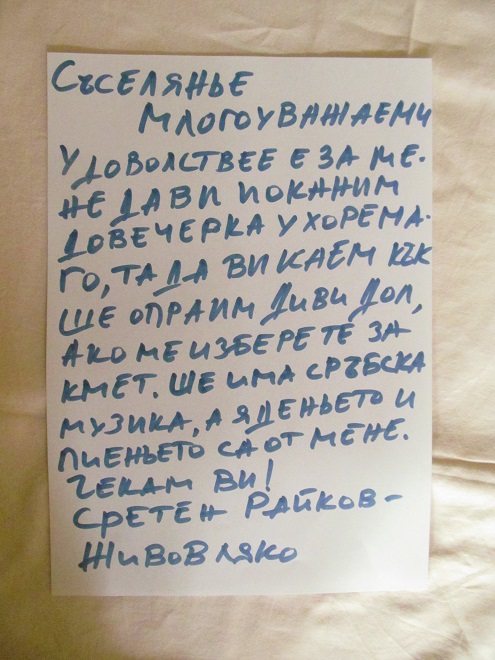 Съселянье
многоуважаеми
удоволствее е за ме-
не да ви поканим
довечерка у хорема-
го, та да ви каем кък
ше опраим Диви дол,
ако ме изберете за
кмет. Ше има сръбска
музика, а яденьето и
пиеньето са от мене.
Чекам ви!
Сретен Райков-
Живовляко